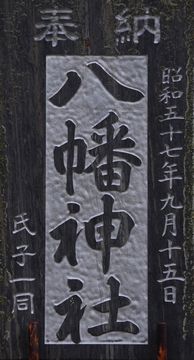 奉納
昭和五十七年九月十五日
八幡神社
氏子一同